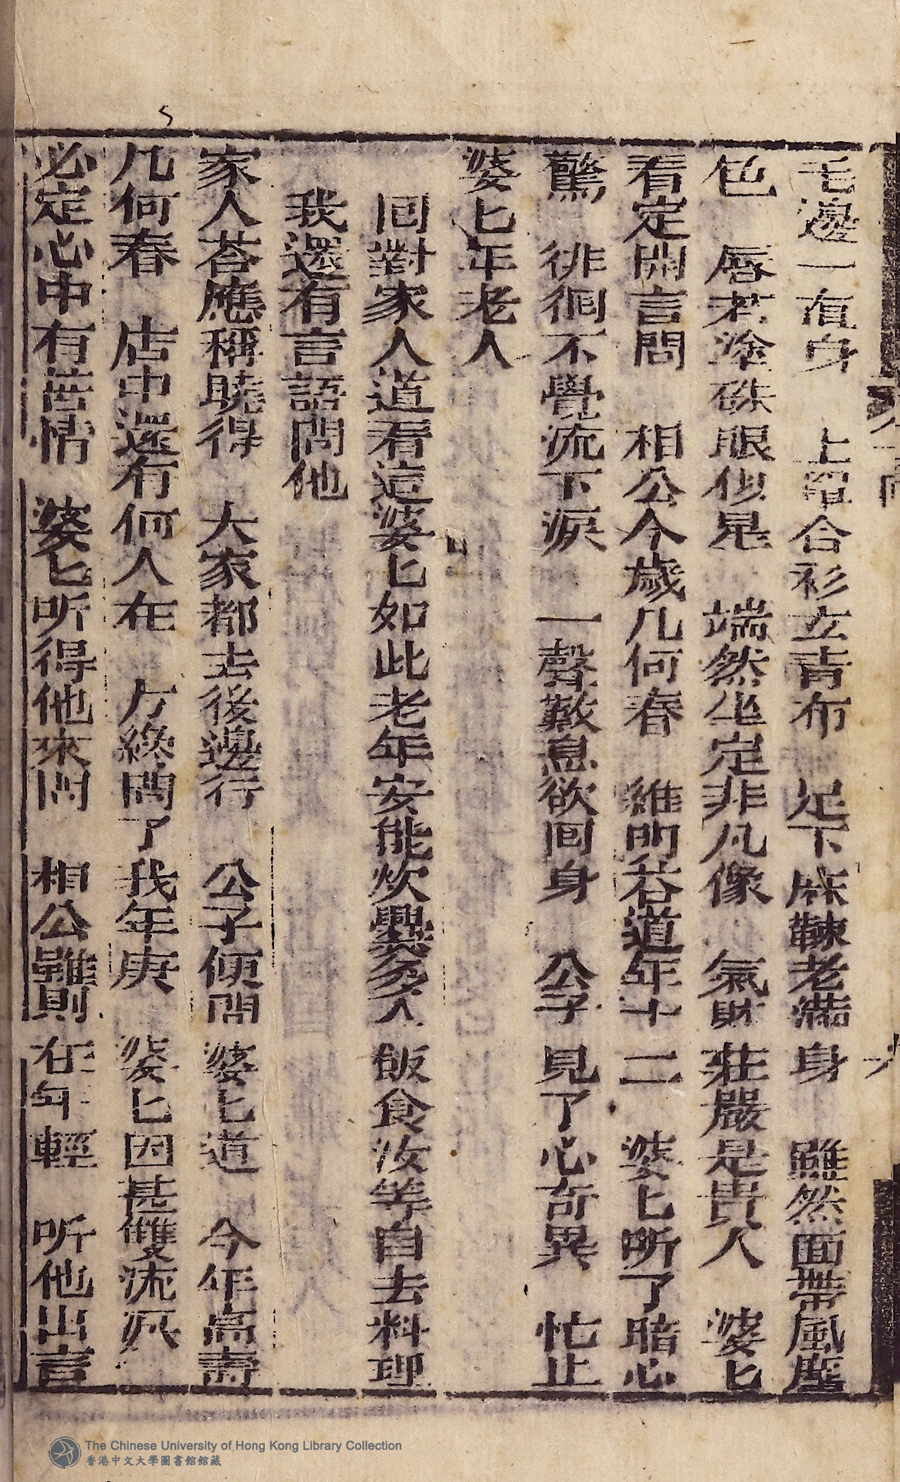 毛邊一直身　上罩合衫立青布　足下麻鞋老滿身　雖然面帶風塵
色　唇若塗硃眼似星　端然坐定非凡像　氣財莊嚴是貴人　婆匕
看定開言問　相公今歲几何春　維明荅道年十二　婆匕听了暗心
驚　徘徊不覺流下淚　一聲歎息欲回身　公子見了心奇異　忙止
婆匕年老人
回對家人道看這婆匕如此老年安能炊爨多人飯食汝等自去料理
我還有言語問他
家人荅應稱曉得　大家都去後邊行　公子便問婆匕道　今年高壽
几何春　店中還有何人在　方纔問了我年庚　婆匕因甚雙流淚
必定心中有苦情　婆匕听得他來問　相公雖則在年輕　听他出言
The Chinese University of Hong Kong Library Collection
香港中文大學圖書館館藏